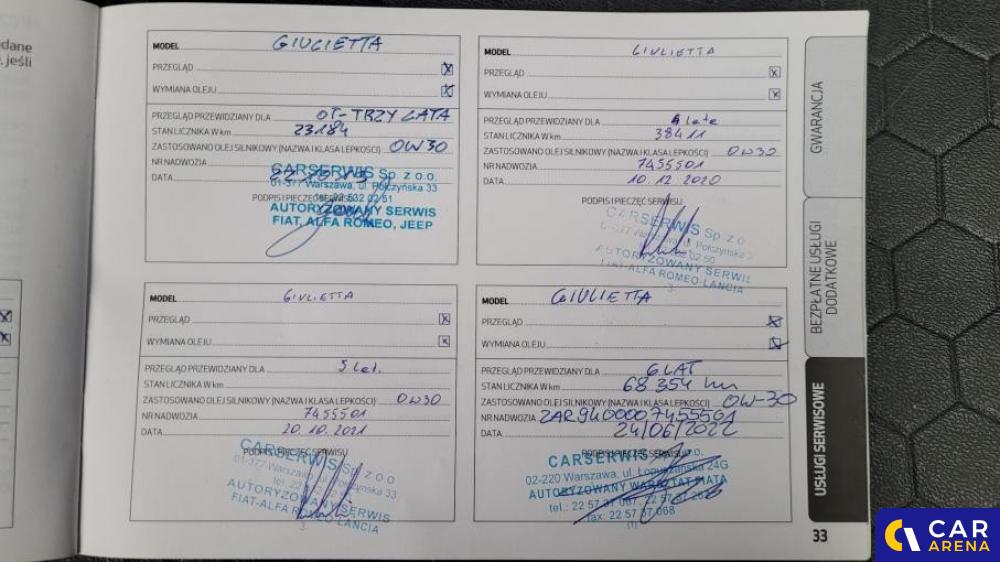 edane
jeśli
MODEL GIULIETTA
PRZEGLĄD X
WYMIANA OLEJU X
PRZEGLĄD PRZEWIDZIANY DLA OT-TRZY LATA
STAN LICZNIKA W km 23184
ZASTOSOWANO OLEJ SILNIKOWY (NAZWA I KLASA LEPKOŚCI) 0W30
NR NADWOZIA
DATA
CARSERWIS Sp. z o.o.
01-377 Warszawa, ul. Połczyńska 33
tel. 22 532 02 51
PODPIS I PIECZĘĆ SERWISU
AUTORYZOWANY SERWIS
FIAT, ALFA ROMEO, JEEP
MODEL GIULIETTA
PRZEGLĄD X
WYMIANA OLEJU X
PRZEGLĄD PRZEWIDZIANY DLA 4 lata
STAN LICZNIKA W km 38411
ZASTOSOWANO OLEJ SILNIKOWY (NAZWA I KLASA LEPKOŚCI) 0W30
NR NADWOZIA 7455501
DATA 10.12.2020
PODPIS I PIECZĘĆ SERWISU
CARSERWIS Sp. z o
01-377 Warszawa, ul. Połczyńska 3
AUTORYZOWANY SERWIS
FIAT-ALFA ROMEO-LANCIA
MODEL GIULIETTA
PRZEGLĄD X
WYMIANA OLEJU X
PRZEGLĄD PRZEWIDZIANY DLA 5 lat.
STAN LICZNIKA W km
ZASTOSOWANO OLEJ SILNIKOWY (NAZWA I KLASA LEPKOŚCI) 0W30
NR NADWOZIA 7455501
DATA 20.10.2021
PODPIS I PIECZĘĆ SERWISU
CARSERWIS Sp. z o o
01-377 Warszawa, ul. Połczyńska 33
AUTORYZOWANY SERWIS
FIAT-ALFA ROMEO-LANCIA
MODEL GIULIETTA
PRZEGLĄD X
WYMIANA OLEJU X
PRZEGLĄD PRZEWIDZIANY DLA 6 LAT
STAN LICZNIKA W km 68 354 km
ZASTOSOWANO OLEJ SILNIKOWY (NAZWA I KLASA LEPKOŚCI) 0W-30
NR NADWOZIA ZAR9400007455501
DATA 24/06/2022
PODPIS I PIECZĘĆ SERWISU
CARSERWIS Sp. z o.o.
02-220 Warszawa, ul. Łopuszańska 24G
AUTORYZOWANY WARSZTAT FIATA
fax: 22 57 37 068
GWARANCJA
BEZPŁATNE USŁUGI
DODATKOWE
USŁUGI SERWISOWE
33
CAR
ARENA